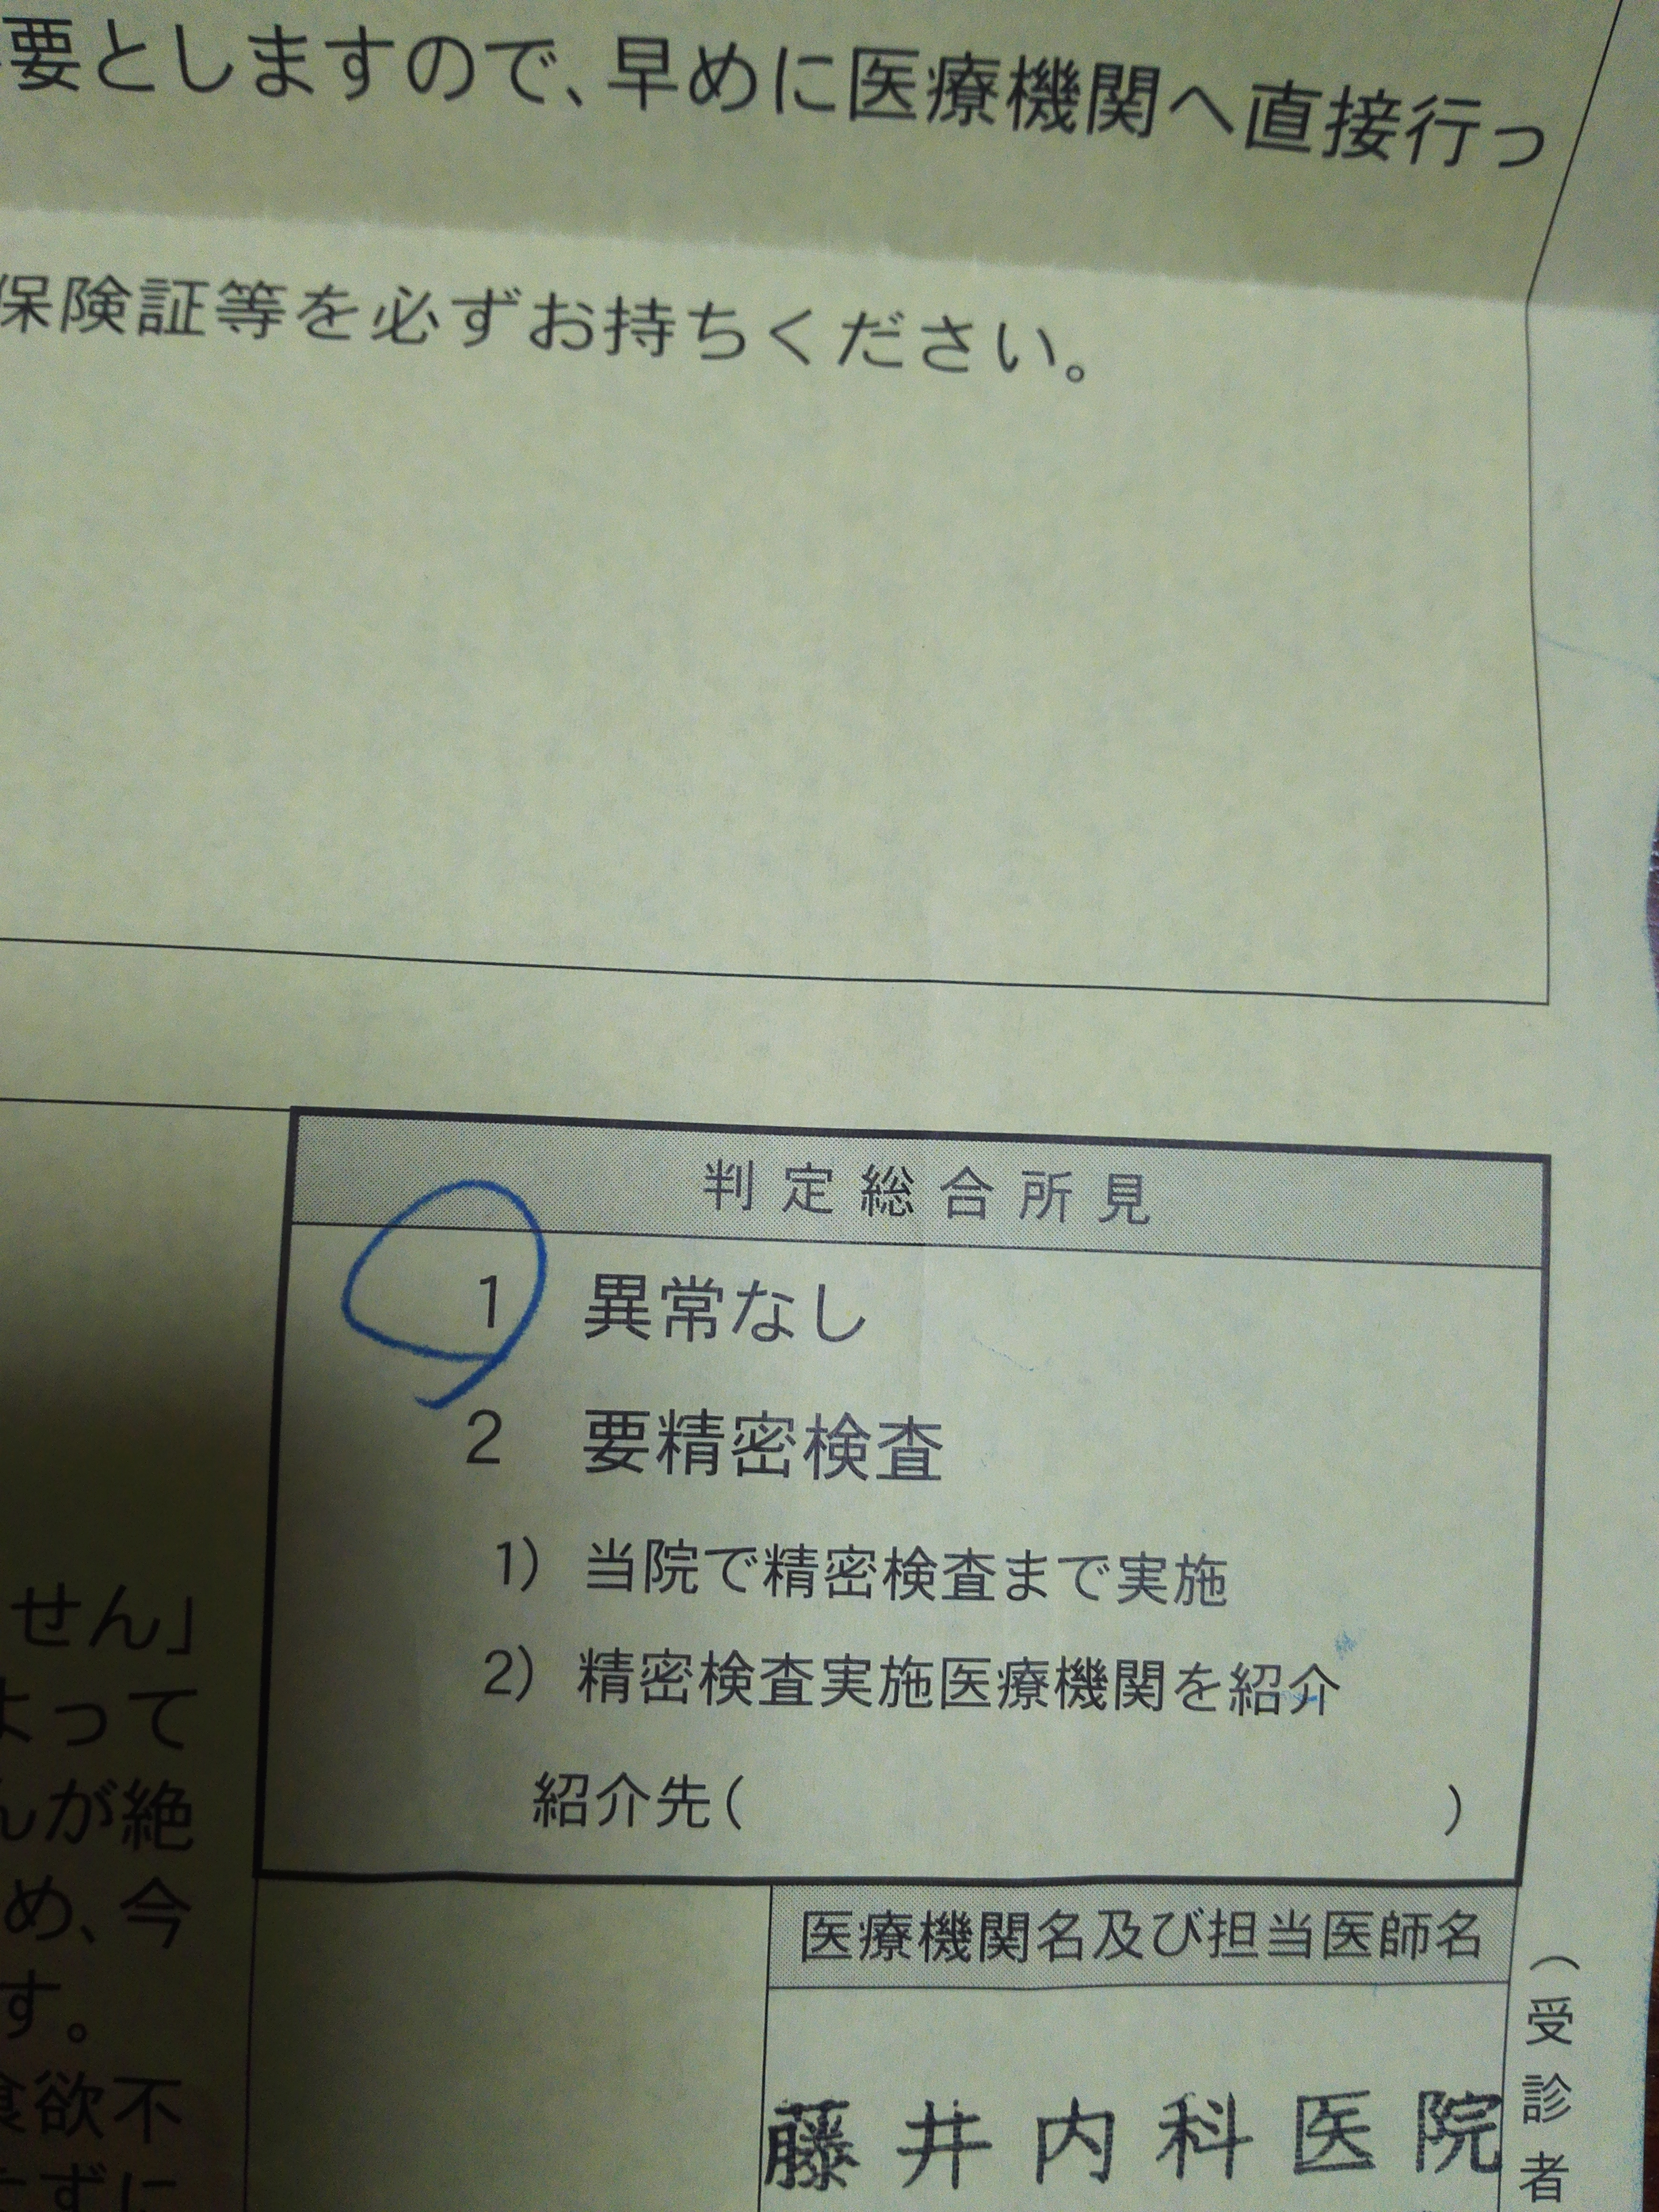 要としますので、早めに医療機関へ直接行っ
保険証等を必ずお持ちください。
判定総合所見
1 異常なし
2 要精密検査
1) 当院で精密検査まで実施
2) 精密検査実施医療機関を紹介
紹介先( )
せん」
よって
んが絶
め、今
す。
食欲不
たずに
医療機関名及び担当医師名
藤井内科医院
(受診者